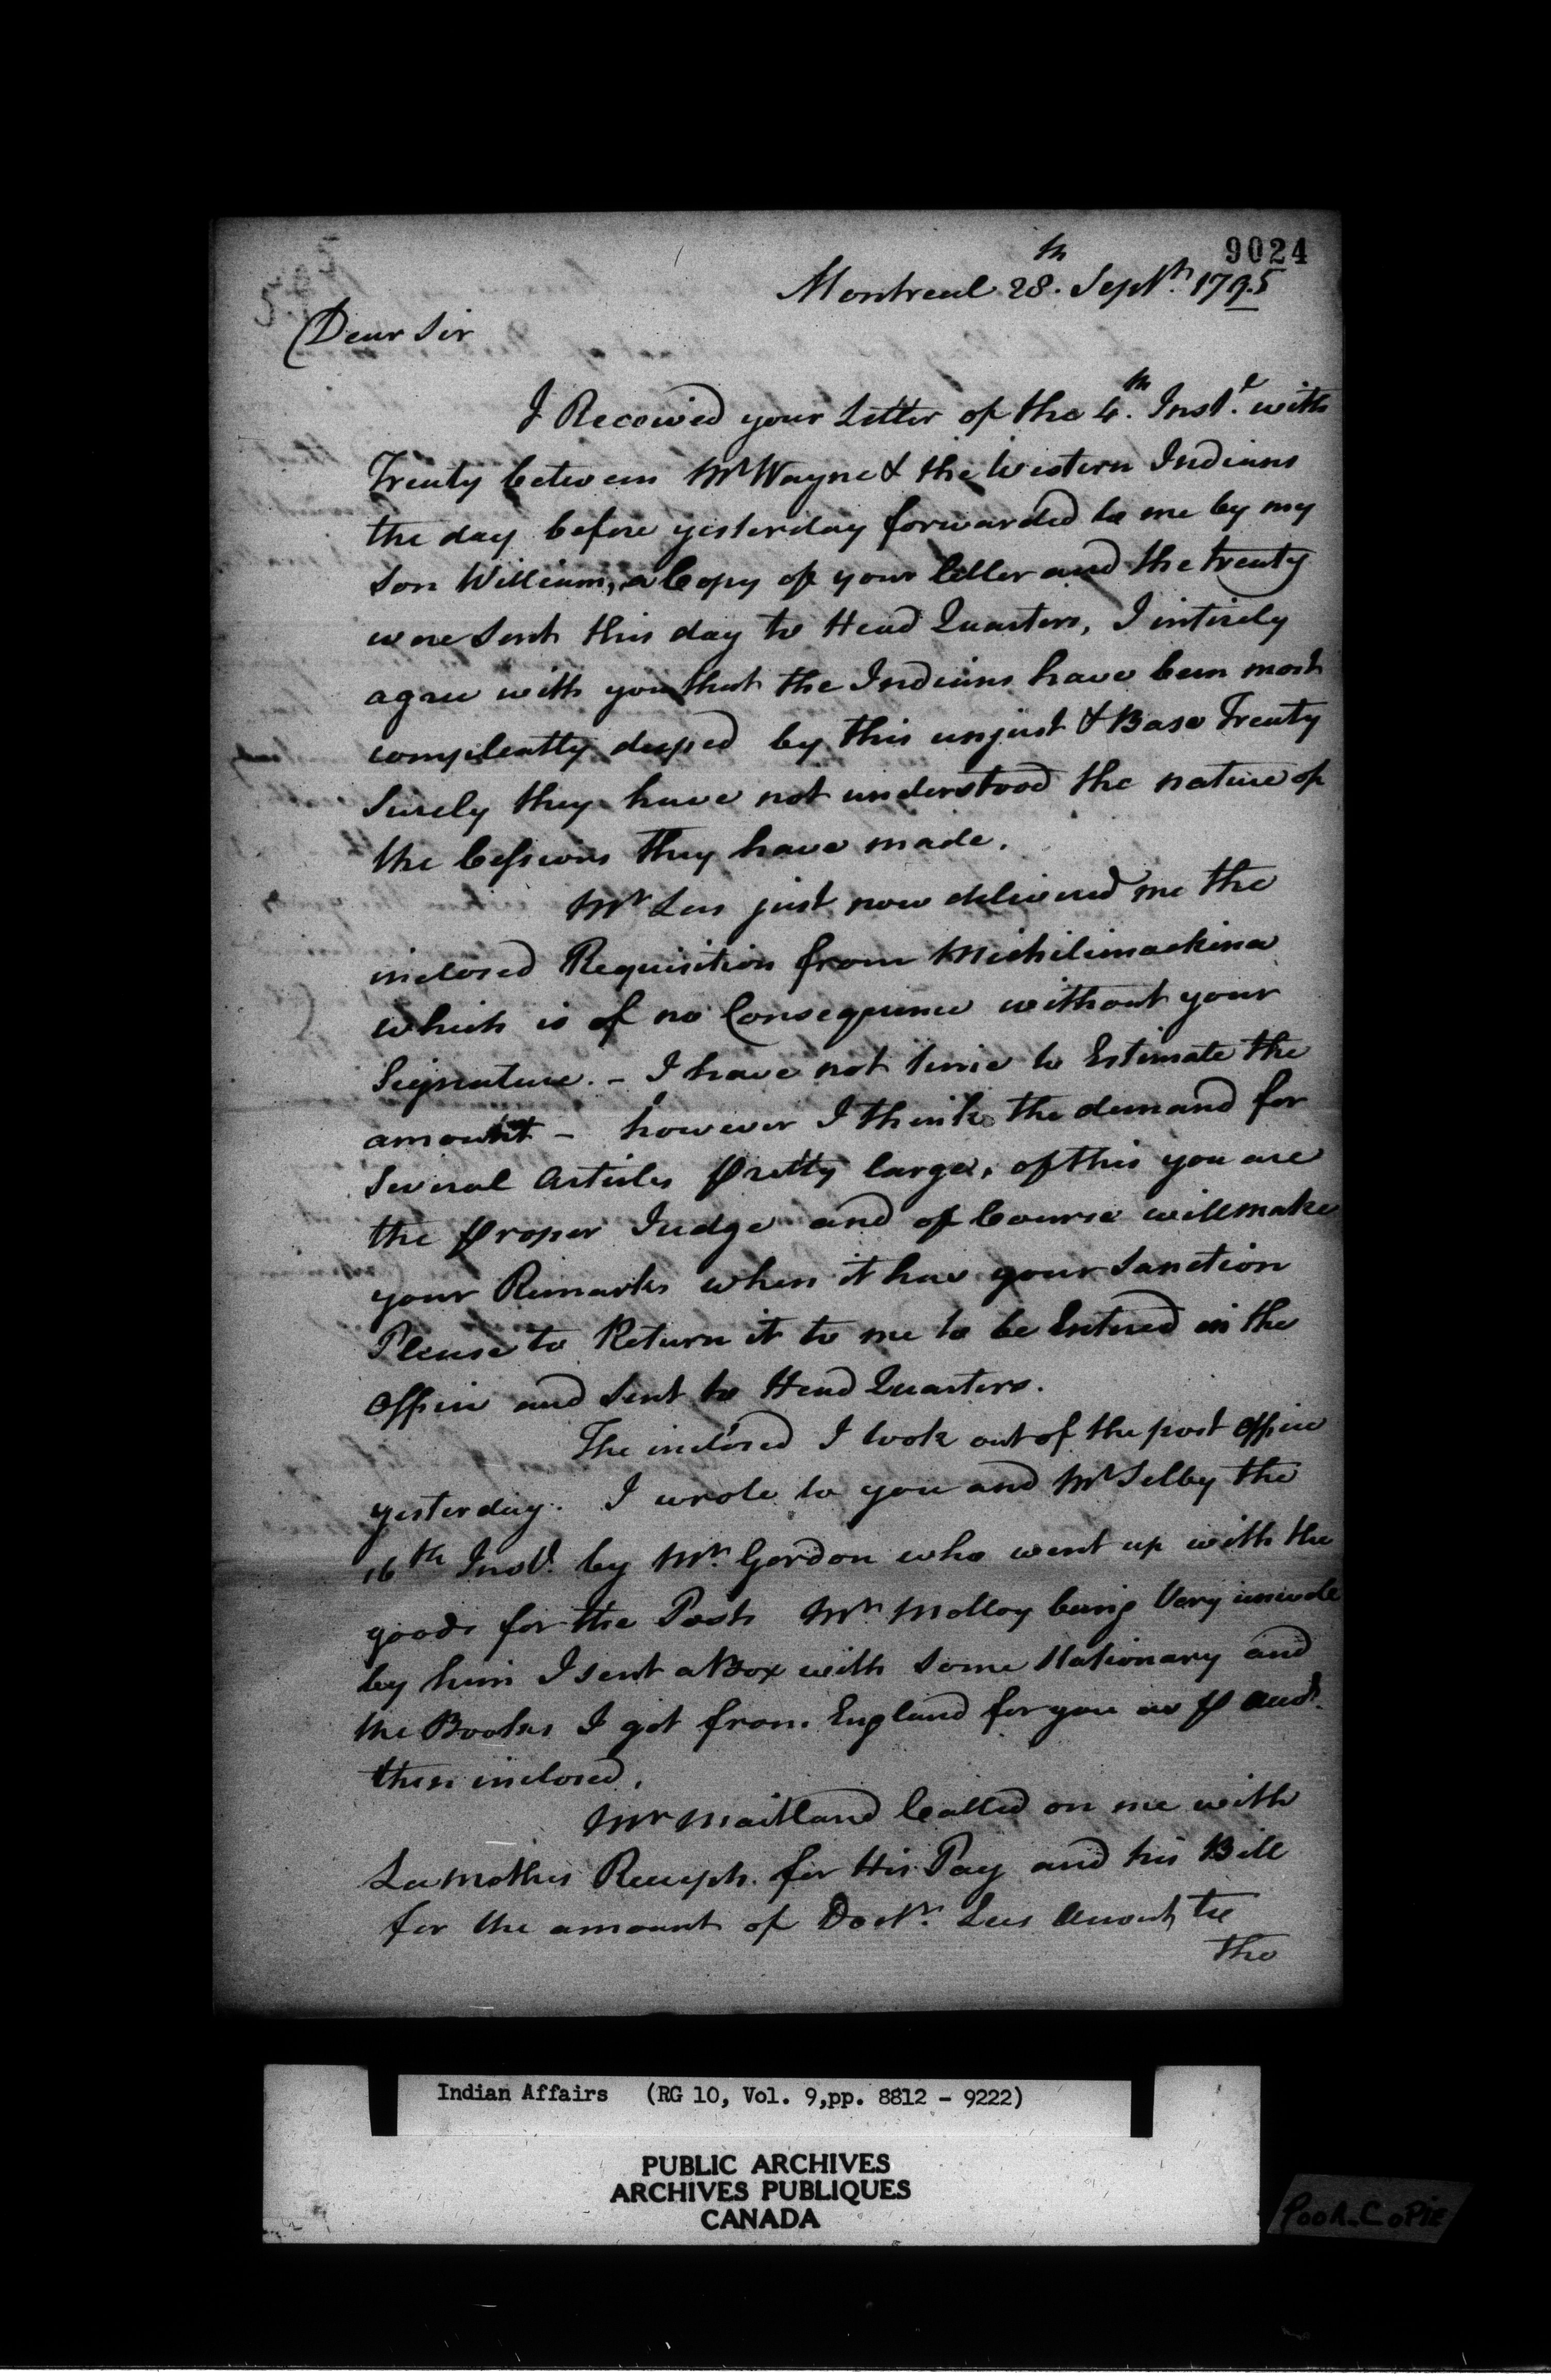 9024
Montreal 28.th Septr. 1795
Dear Sir
I Received your Letter of the 4.th Inst. with
Treaty between Mr Wayne & the Western Indians
the day before yesterday forwarded to me by my
Son William, a Copy of your letter and the treaty
were Sent this day to Head Quarters, I intirely
agree with you that the Indians have been most
compleatly duped by this unjust & Base Treaty
Surely they have not understood the nature of
the Cessions they have made.
Mr Lees just now delivered me the
inclosed Requisition from Michilimackina
which is of no Consequence without your
Signature. - I have not time to Estimate the
amount - however I think the demand for
Several Articles pretty large, of this you are
the proper Judge and of Course will make
your Remarks when it has your Sanction
Please to Return it to me to be Entered in the
Office and Sent to Head Quarters.
The inclosed I took out of the post Office
yesterday. I wrote to you and Mr Selby the
16th Inst. by Mr. Gordon who went up with the
goods for the Posts Mr. Molloy being Very
by him I sent a Box with Some Stationary and
the Books I got from England for you as p Acct.
then inclosed.
Mr Maitland Called on me with
Lamothes Receipts for His Pay and his Bill
for the amount of Doctr. Lees Account,
the
Indian Affairs (RG 10, Vol. 9,pp. 8812 - 9222)
PUBLIC ARCHIVES
ARCHIVES PUBLIQUES
CANADA
POOR COPIE